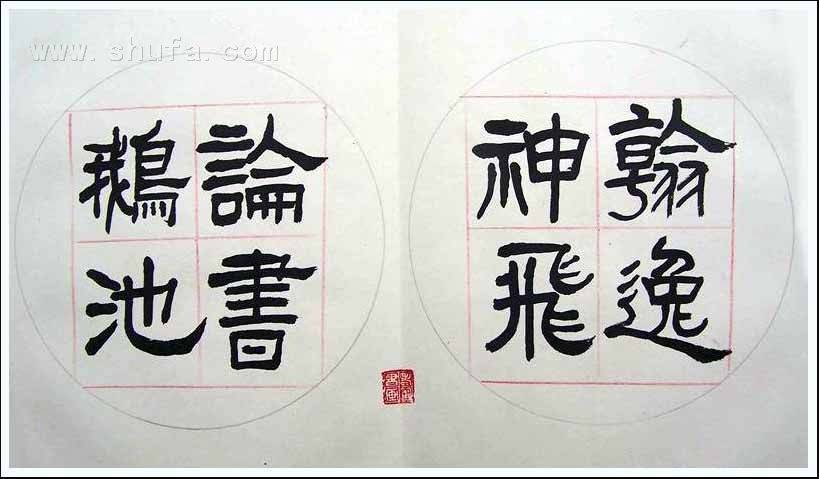 www.shufa.com
翰逸
神飛
論書
鵝池